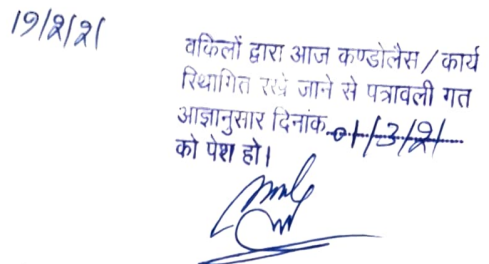 19/2/21
वकिलों द्वारा आज कण्डोलैस / कार्य
स्थिागित रखे जाने से पत्रावली गत
आज्ञानुसार दिनांक 01/3/21
को पेश हो।